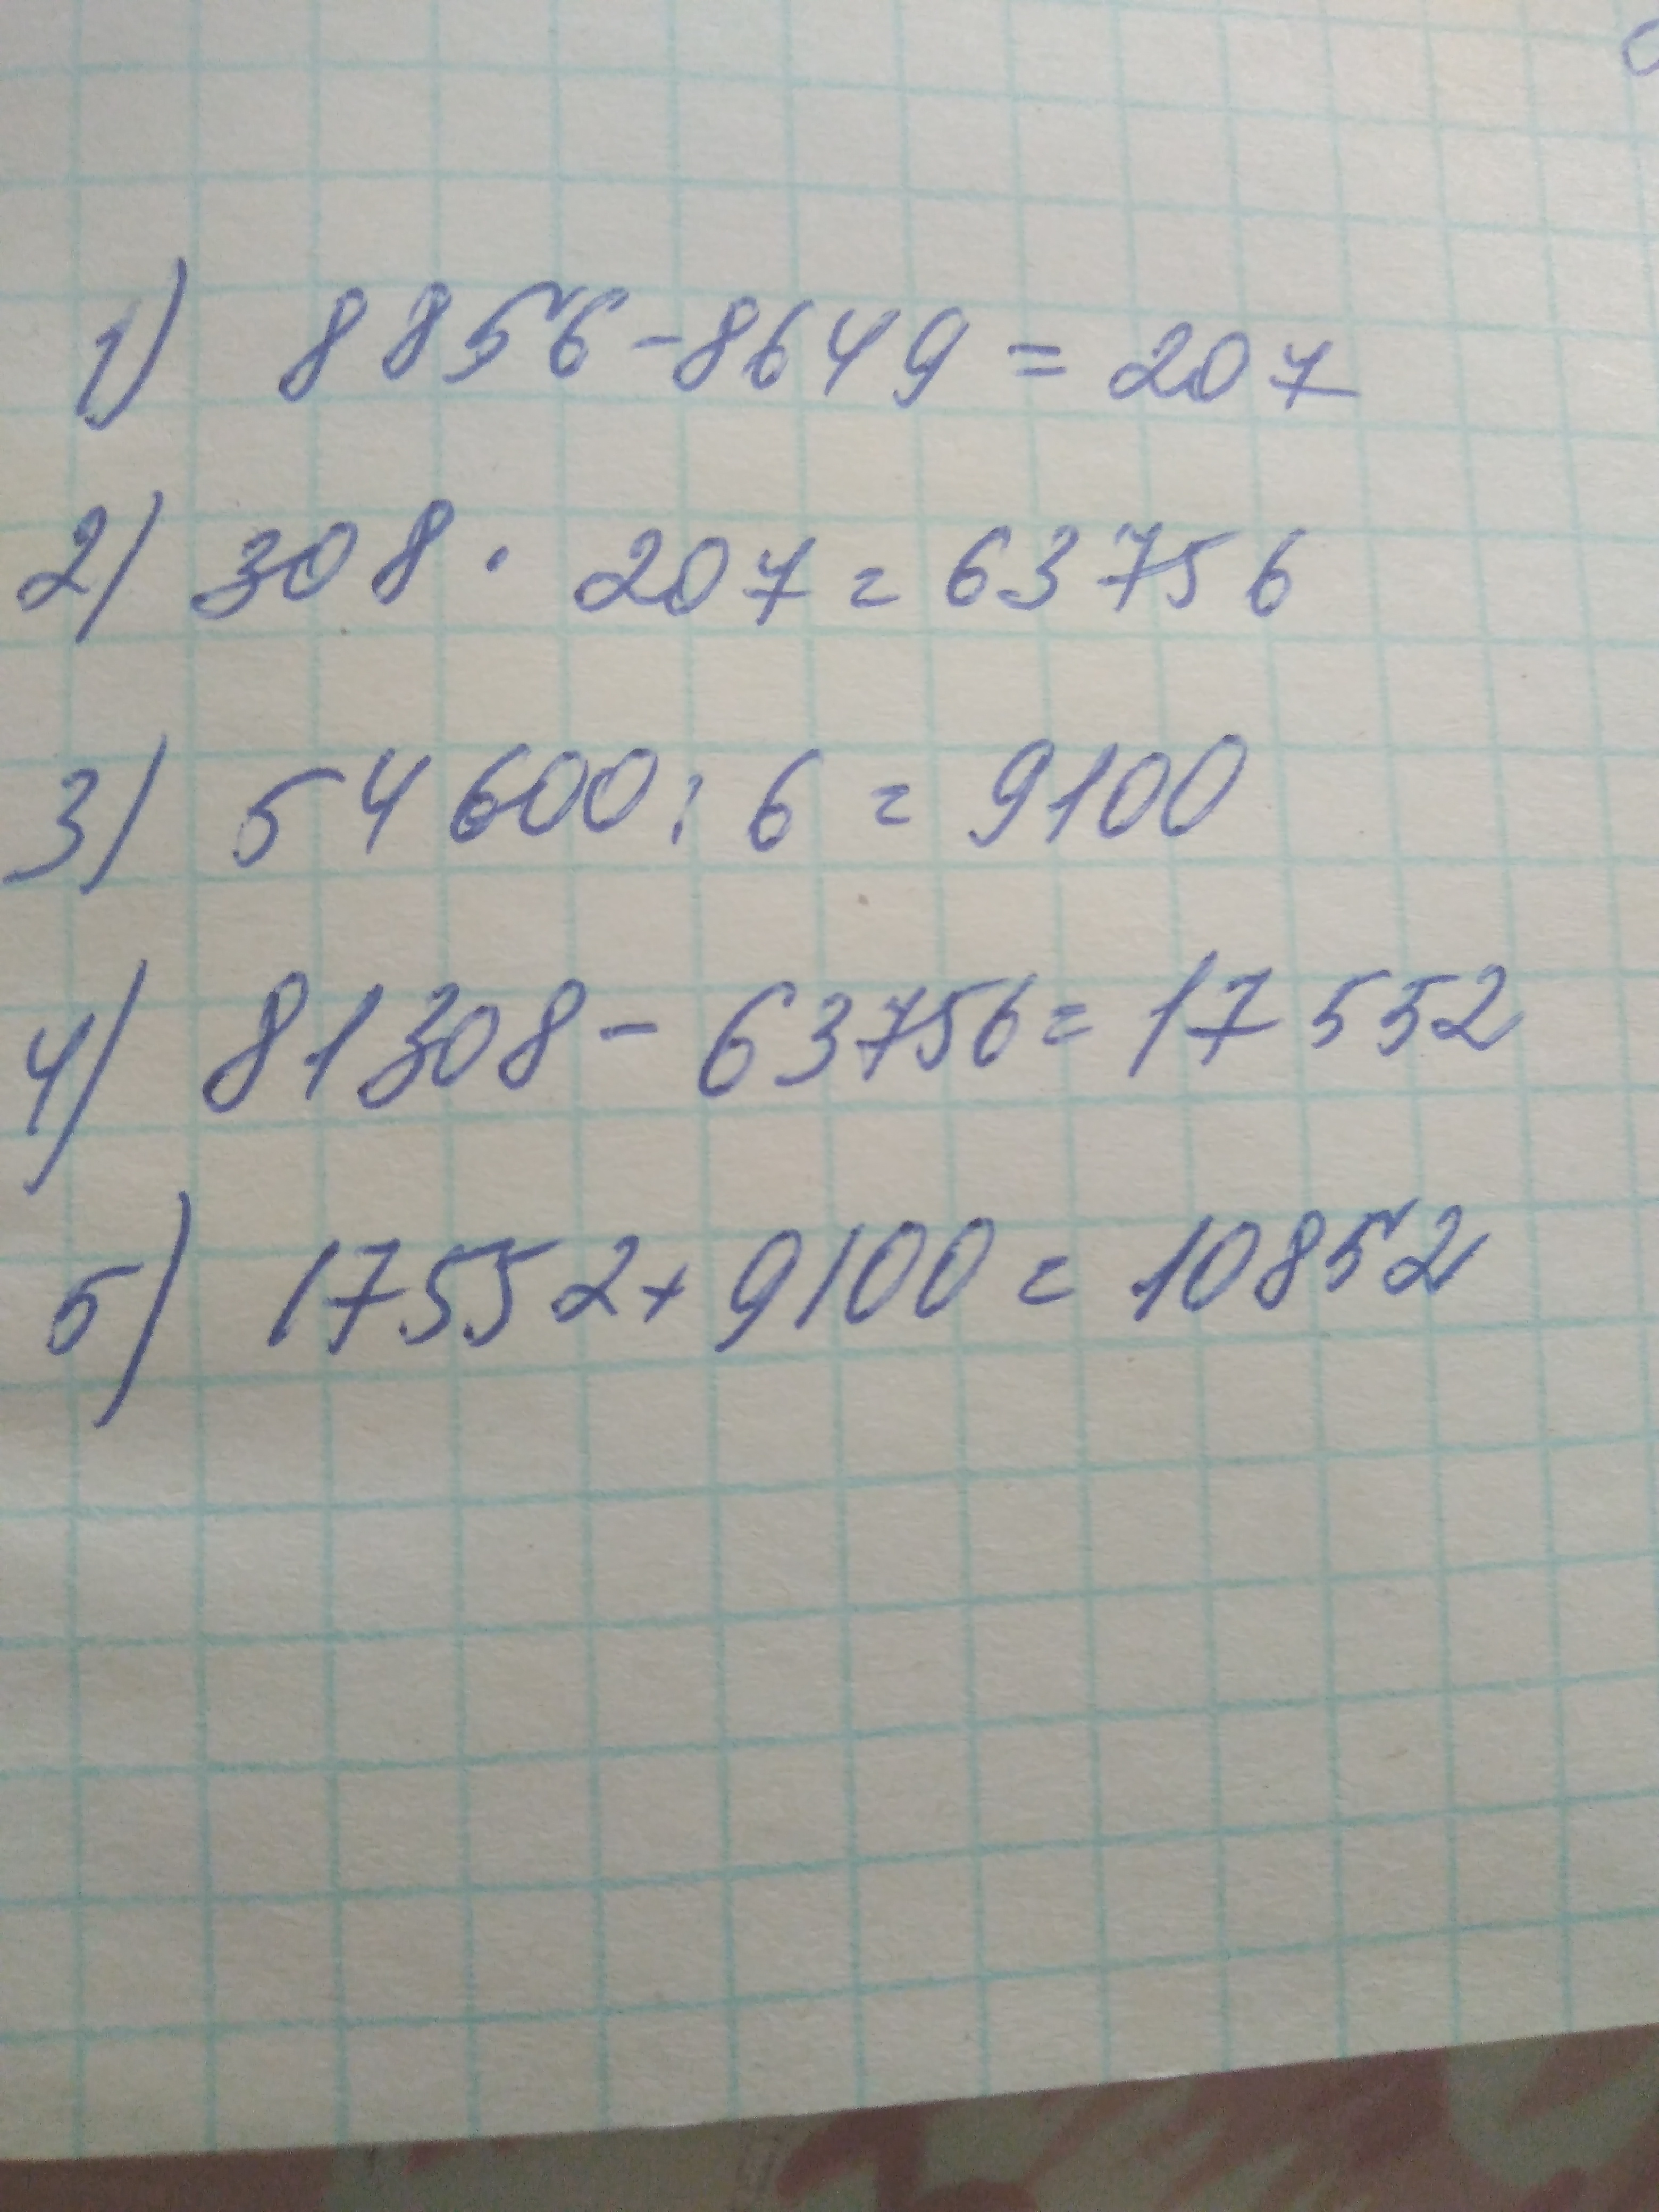 1) 8856-8649=207
2) 308 · 207=63756
3) 54600:6=9100
4) 81308-63756=17552
5) 17552+9100=10852